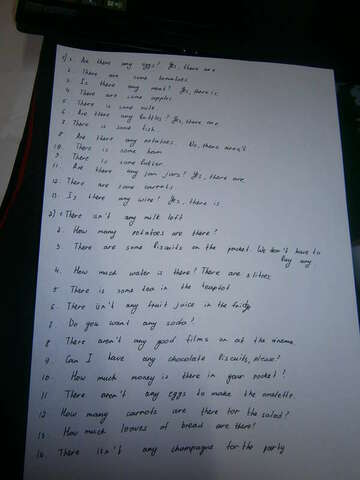 1) 1. Are there any eggs? Yes, there are
2. There are some tomatoes
3. Is there any meat? Yes, there is
4. There are some apples
5. There is some milk
6. Are there any bottles? Yes, there are
7. There is some fish
8. Are there any potatoes. No, there aren't
10. There is some ham
9. There is some butter
11. Are there any jam jars? Yes, there are
12. There are some carrots
13. Is there any wine? Yes, there is
2) 1 There isn't any milk left
2. How many potatoes are there?
3. There are some biscuits on the pocket. We don't have to
buy any
4. How much water is there? There are 2 litres
5. There is some tea in the teapot
6. There isn't any fruit juice in the fridge
7. Do you want any soda?
8 There aren't any good films on at the cinema
9. Can I have any chocolate biscuits, please?
10. How much money is there in your pocket?
11 There aren't any eggs to make the omelette.
12 How many carrots are there for the salad?
13. How much loaves of bread are there?
14. There isn't any champagne for the party